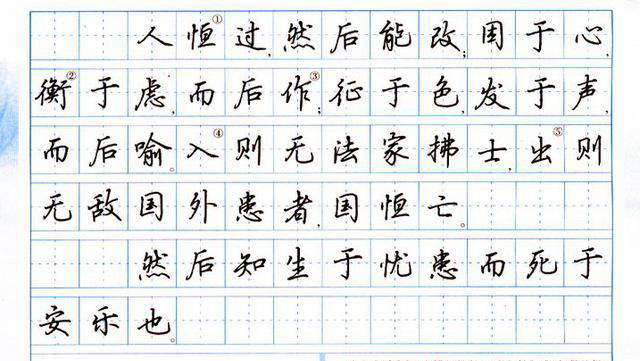 人恒①过，然后能改；困于心，
衡②于虑，而后作③；征于色，发于声，
而后喻④。入则无法家拂士，出⑤则
无敌国外患者，国恒亡。
然后知生于忧患而死于
安乐也。